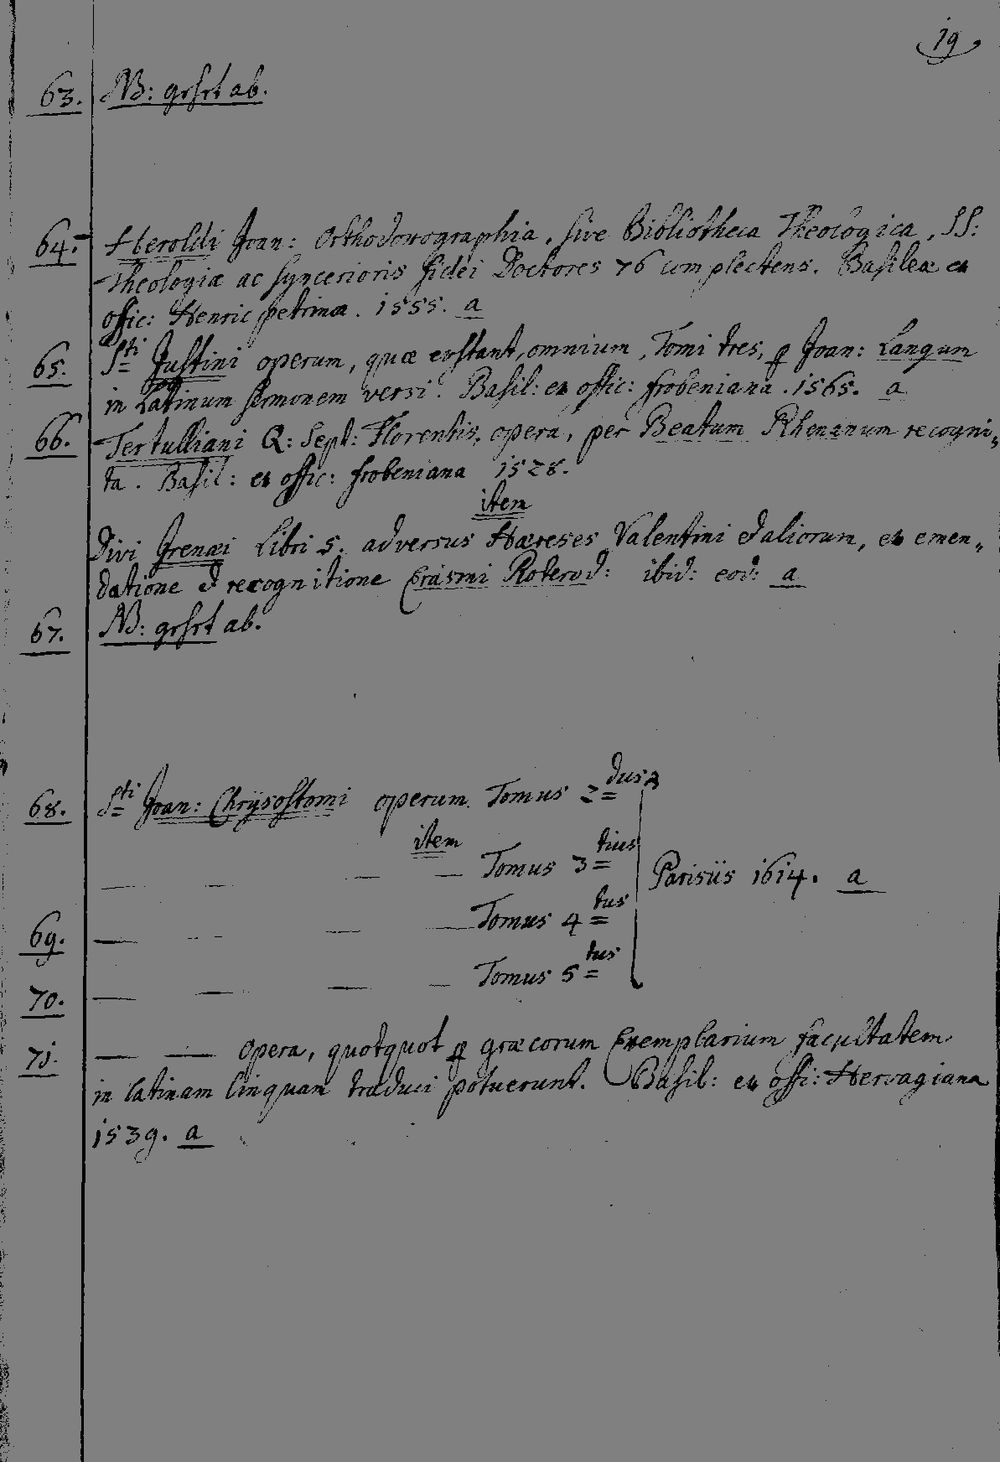 19
63. NB: gehet ab.
64. Heroldi Joan: Orthodoxographia, sive Bibliotheca Theologica, SS:
Theologiæ ac syncerioris fidei Doctores 76 complectens. Basileæ ex
offic: Henric petrina. 1555. a
65. Sti Justini operum, quæ extant, omnium, Tomi tres, p Joan: Langum
in Latinum sermonem versi. Basil: ex offic: frobeniana. 1565. a
66. Tertulliani Q: Sept: Florentis. opera, per Beatum Rhenanum recogni„
ta. Basil: ex offic: frobeniana 1528.
item
Divi Jrenæi Libri 5. adversus Hæreses Valentini et aliorum, ex emen„
datione et recognitione Erasmi Roterod: ibid: eod: a
67. NB: gehet ab.
68. Sti Joan: Chrÿsostomi operum. Tomus 2dus
item
— — — — Tomus 3tius Parisiis 1614. a
69. — — — — Tomus 4tus
70. — — — — Tomus 5tus
71. — — opera, quotquot p græcorum Exemplarium facultatem
in latinam linquam traduci potuerunt. Basil: ex offi: Hervagiana
1539. a